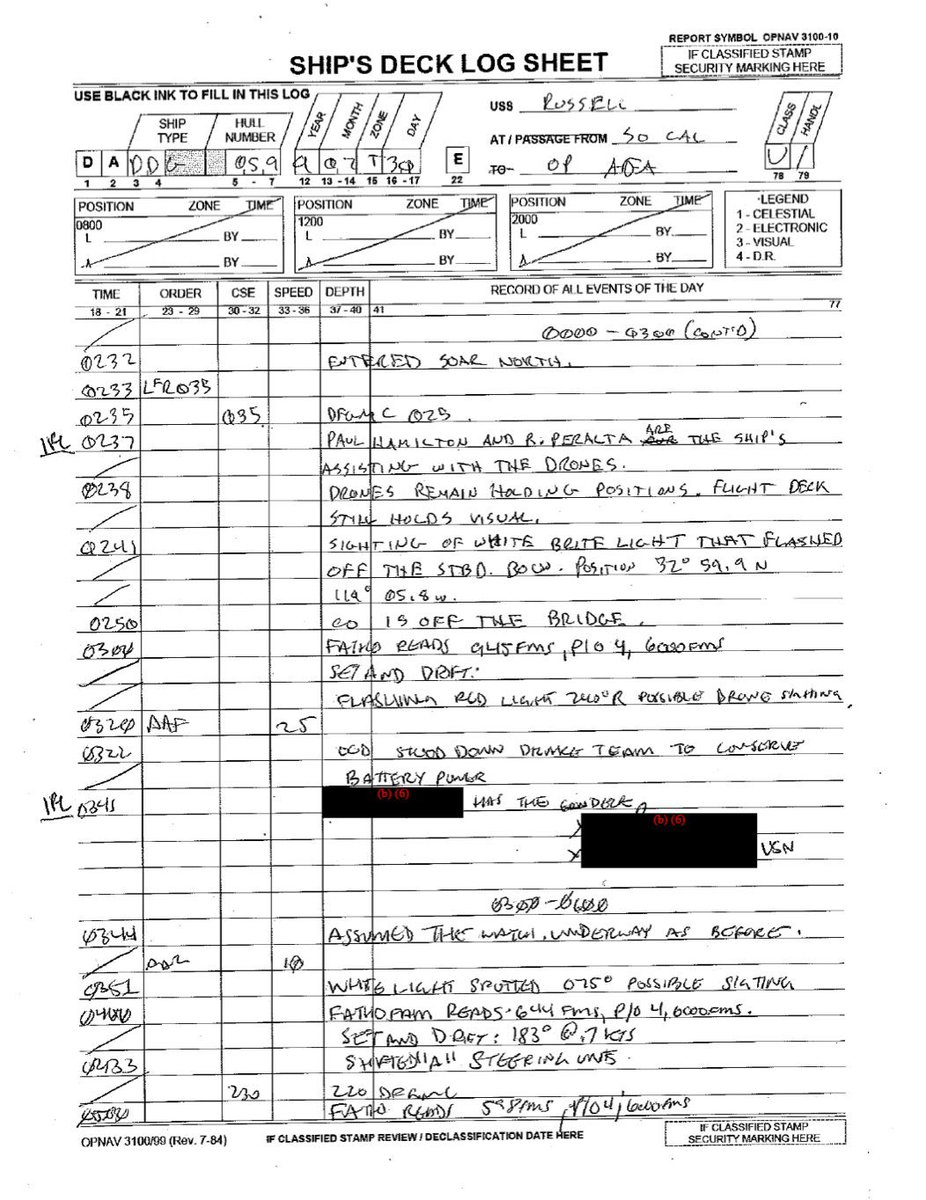 REPORT SYMBOL OPNAV 3100-10
IF CLASSIFIED STAMP
SECURITY MARKING HERE
SHIP'S DECK LOG SHEET
USE BLACK INK TO FILL IN THIS LOG
USS RUSSELL
AT / PASSAGE FROM SO CAL
TO- OP AREA
SHIP TYPE HULL NUMBER YEAR MONTH ZONE DAY CLASS HANDL
D A DDG 059 9 07 T 30 E U
1 2 3 4 5 - 7 12 13 - 14 15 16 - 17 22 78 79
POSITION ZONE TIME POSITION ZONE TIME POSITION ZONE TIME LEGEND
0800 1200 2000
L BY L BY L BY
BY BY BY
1 - CELESTIAL
2 - ELECTRONIC
3 - VISUAL
4 - D.R.
TIME ORDER CSE SPEED DEPTH RECORD OF ALL EVENTS OF THE DAY
18 - 21 23 - 29 30 - 32 33 - 36 37 - 40 41 77
0000 - 0300 (CONT'D)
0232 ENTERED SOAR NORTH.
0233 LFR035
0235 035 025.
0237 PAUL HAMILTON AND R. PERALTA ARE THE SHIP'S
ASSISTING WITH THE DRONES.
0238 DRONES REMAIN HOLDING POSITIONS. FLIGHT DECK
STILL HOLDS VISUAL.
0241 SIGHTING OF WHITE BRITE LIGHT THAT FLASHED
OFF THE STBD. BOW. POSITION 32° 59.9 N
119° 05.8 W.
0250 CO IS OFF THE BRIDGE.
0300 FATHO READS 945 FMS, P/O 4, 6000 FMS
SET AND DRIFT:
FLASHING RED LIGHT POSSIBLE DRONE
0320 AAF 25
0322 OOD STOOD DOWN TEAM TO CONSERVE
BATTERY POWER
0345 (b) (6) HAS THE
(b) (6)
USN
0344 ASSUMED THE WATCH. UNDERWAY AS BEFORE.
10
0351 WHITE LIGHT SPOTTED 075° POSSIBLE SIGTING
0400 READS 644 FMS, P/O 4, 6000 FMS.
SET AND DRIFT: 183° @ .7 KTS
0433 SHIFTED STEERING UNITS.
230 220
0500 FATHO READS 598 FMS, P/O 4, 6000 FMS
OPNAV 3100/99 (Rev. 7-84) IF CLASSIFIED STAMP REVIEW / DECLASSIFICATION DATE HERE
IF CLASSIFIED STAMP
SECURITY MARKING HERE